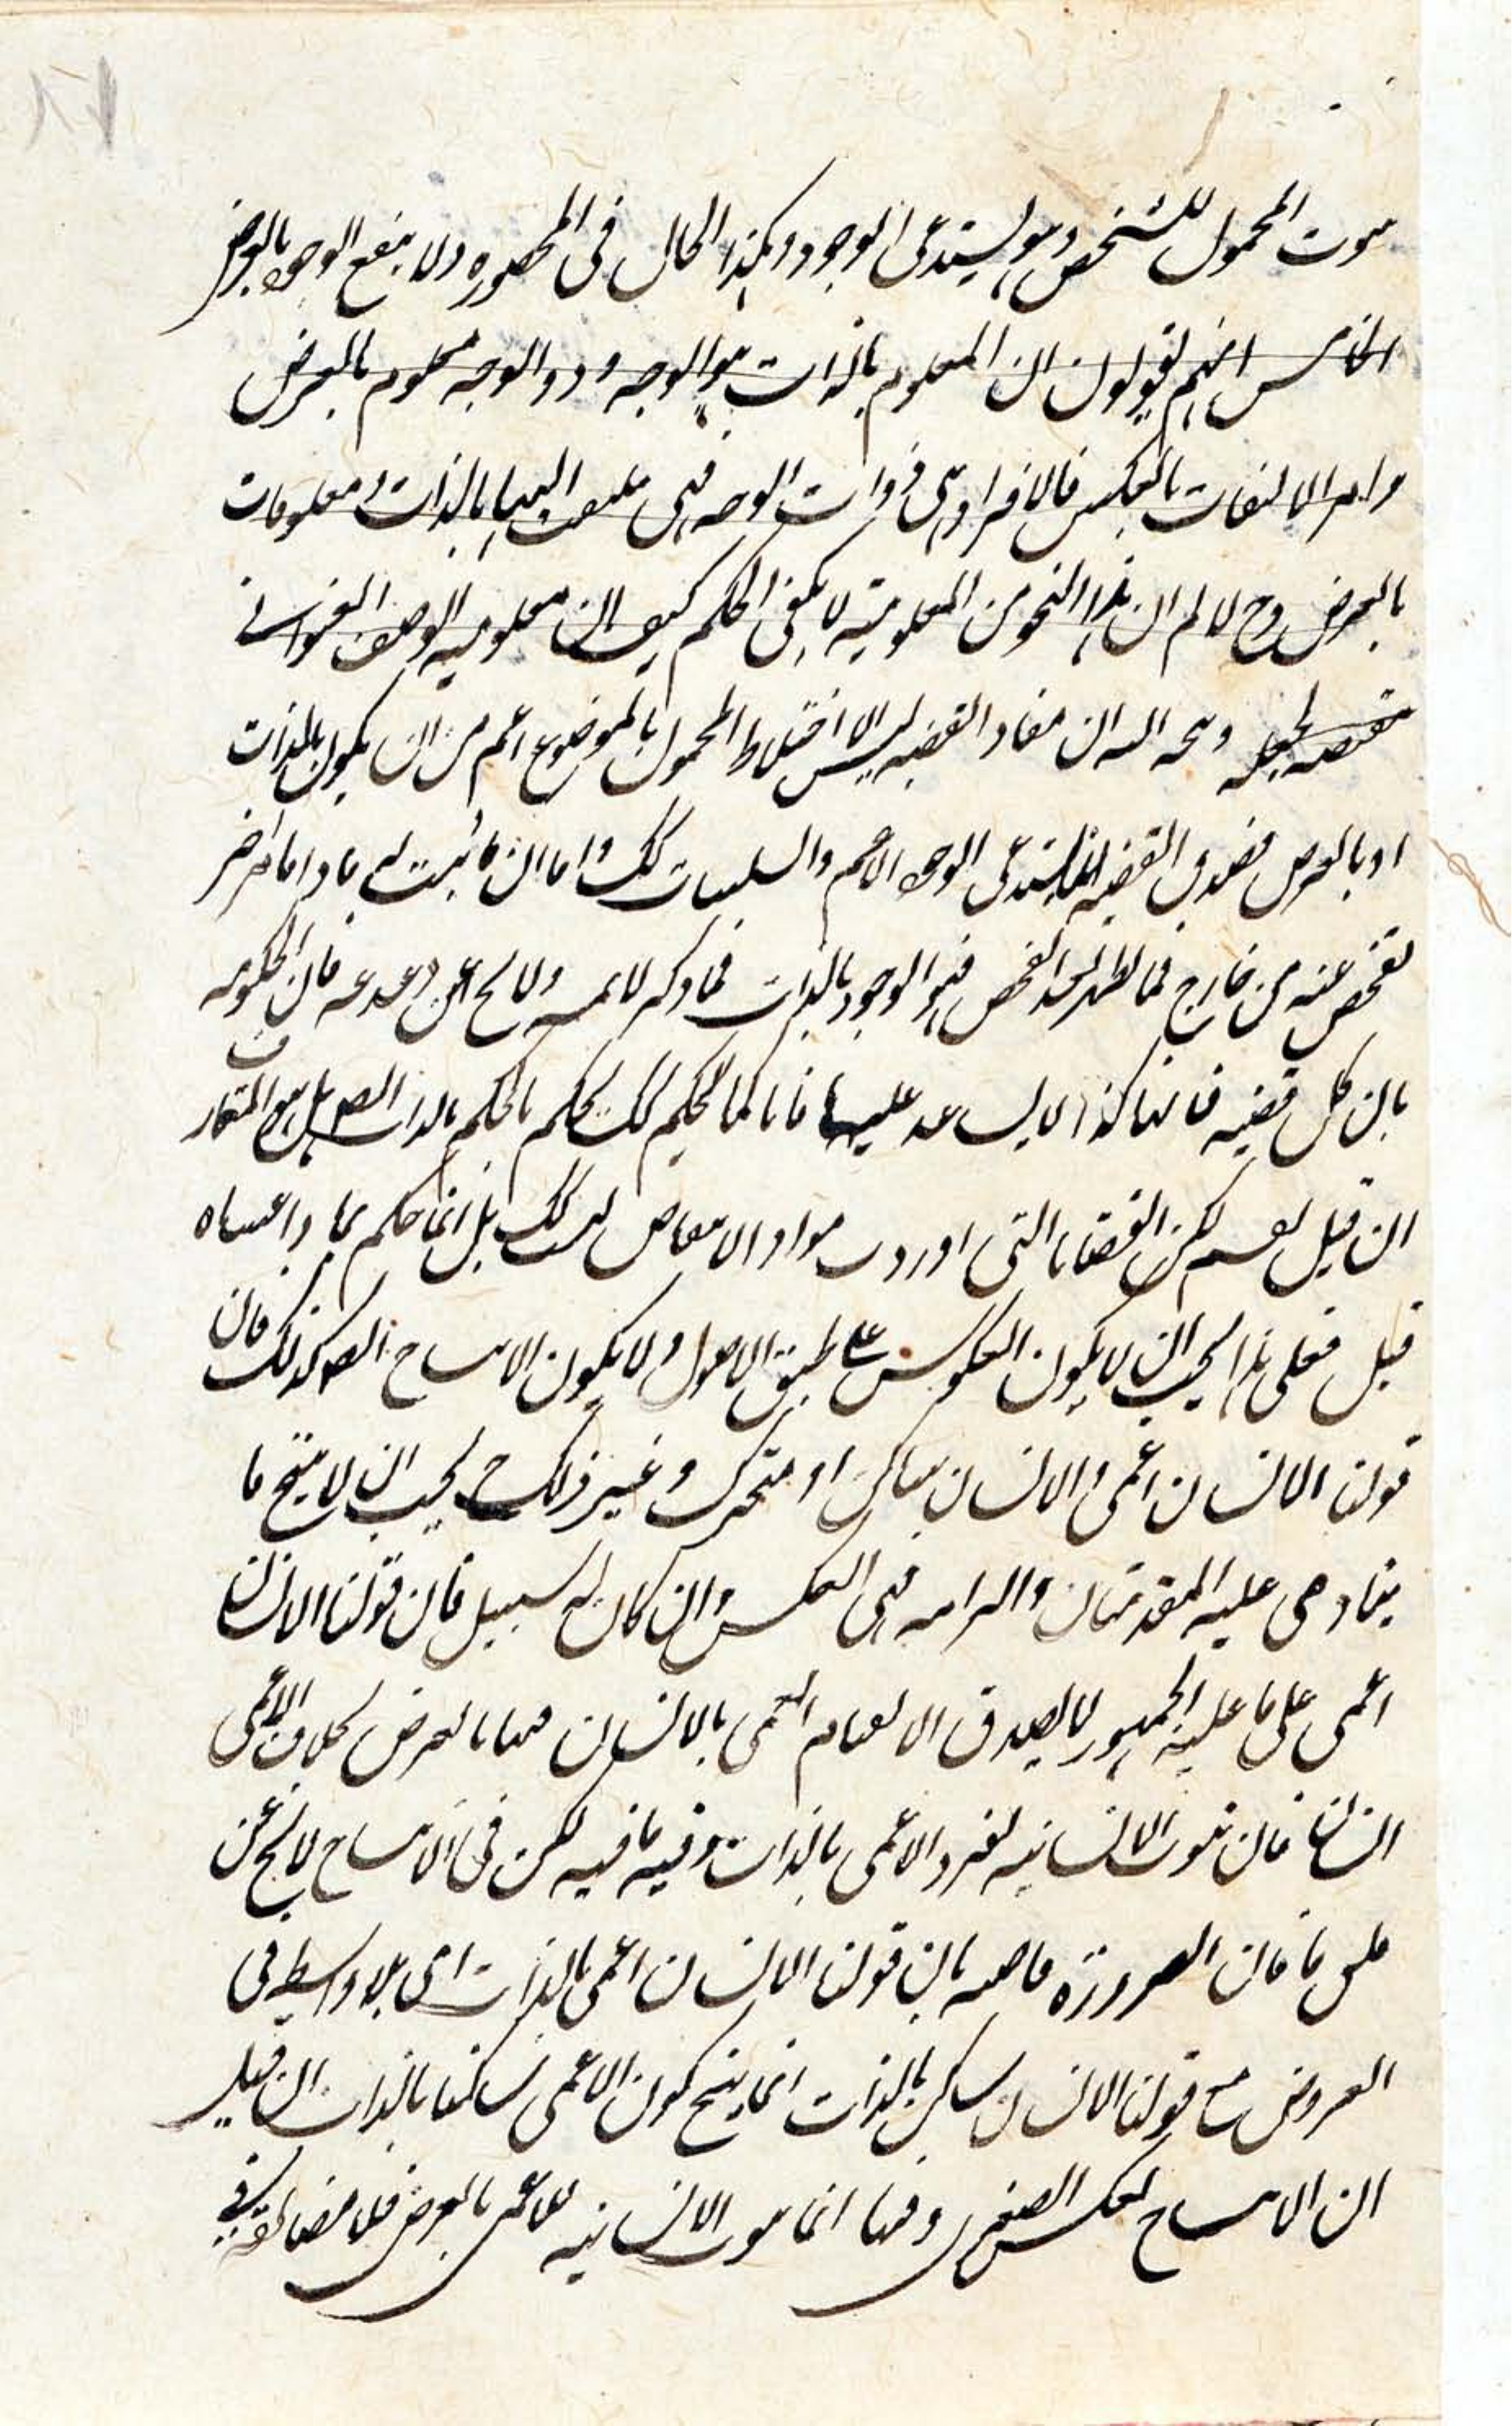 ثبوت المحمول للشخص وهو يستدعى الوجود وهكذا الحال فى المحصوره ولا ينفع الوجود بالعرض
الخامس انهم يقولون ان المعلوم بالذات هو الوجه وذو الوجه معلوم بالعرض
وامر الالتفات بالعكس فالافراد هى ذوات الوجه فهى ملتفت اليها بالذات ومعلومات
بالعرض وح لا لم ان هذا النحو من المعلومية لا يكفى الحكم كيف ان معلوميه الوصف العنوانى
ان مفاد القضيه ليس الا اختلاط المحمول بالموضوع اعم من ان يكون بالذات
او بالعرض فصدق القضيه انما يستدعى الوجود الاعم والسلبيات كك واما ان ما ثبت له ماذا فامر اخر
تفحص عنه من خارج فما ظهر بعد الفحص فهو الموجود بالذات فما ذكر ولا يخ عن دغدغه فان الحكومه
بان كل قضيه فانها كذا لا يساعد عليها فانا كما نحكم كك نحكم بالحكم بالذات ايضا بل هو المتعارف
ان قيل نعم لكن القضايا التى اوردت مواد الانتقاض ليست كك بل انما حكم بما
قيل فعلى هذا يجب ان لا يكون العكوس على طبق الاصول ولا يكون الانتاج ايضا كذلك فان
قولنا الانسان اعمى والانسان ساكن او متحرك وغير ذلك ح يجب ان لا ينتج ما
ينادى عليه المقدمتان والتزامه فى العكس وان كان له سبيل فان قولنا الانسان
اعمى على ما عليه الجمهور لا يصدق الا لقيام العمى بالانسان فهنا بالعرض بخلاف الاعمى
انسان فان ثبوت الانسانيه لفرد الاعمى بالذات وفيه ما فيه لكن فى الانتاج لا يخ عن
فان الضرورة قاضيه بان قولنا الانسان اعمى بالذات اى بلا واسطه فى
العروض مع قولنا الانسان ساكن بالذات انما ينتج كون الاعمى ساكنا بالذات ان قيل
ان الانتاج بعكس الصغرى وفيها انما ثبوت الانسانيه للاعمى بالعرض فلا مضائقه فى